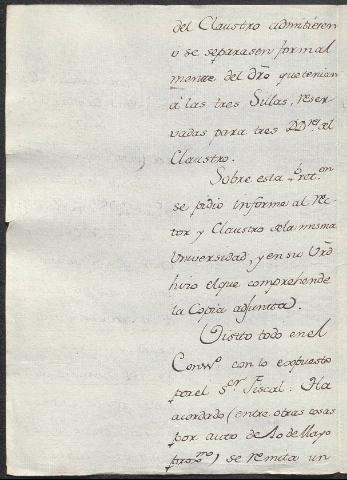 del Claustro admitieren
u se separasen formal
mente del dr̃o que tenian
à las tres Sillas, reser
vadas para tres DD.res del
Claustro.
Sobre esta Pret.on
se pidio informe al rec
tor y Claustro de la misma
Universidad, y en su Vrd
hizo el que comprehende
la Copia adjunta.
Visto todo en el
Cons.o con lo expuesto
por el S.or Fiscal: Ha
acordado (entre otras cosas
por auto de 10 de Mayo
prox.mo) se remita un